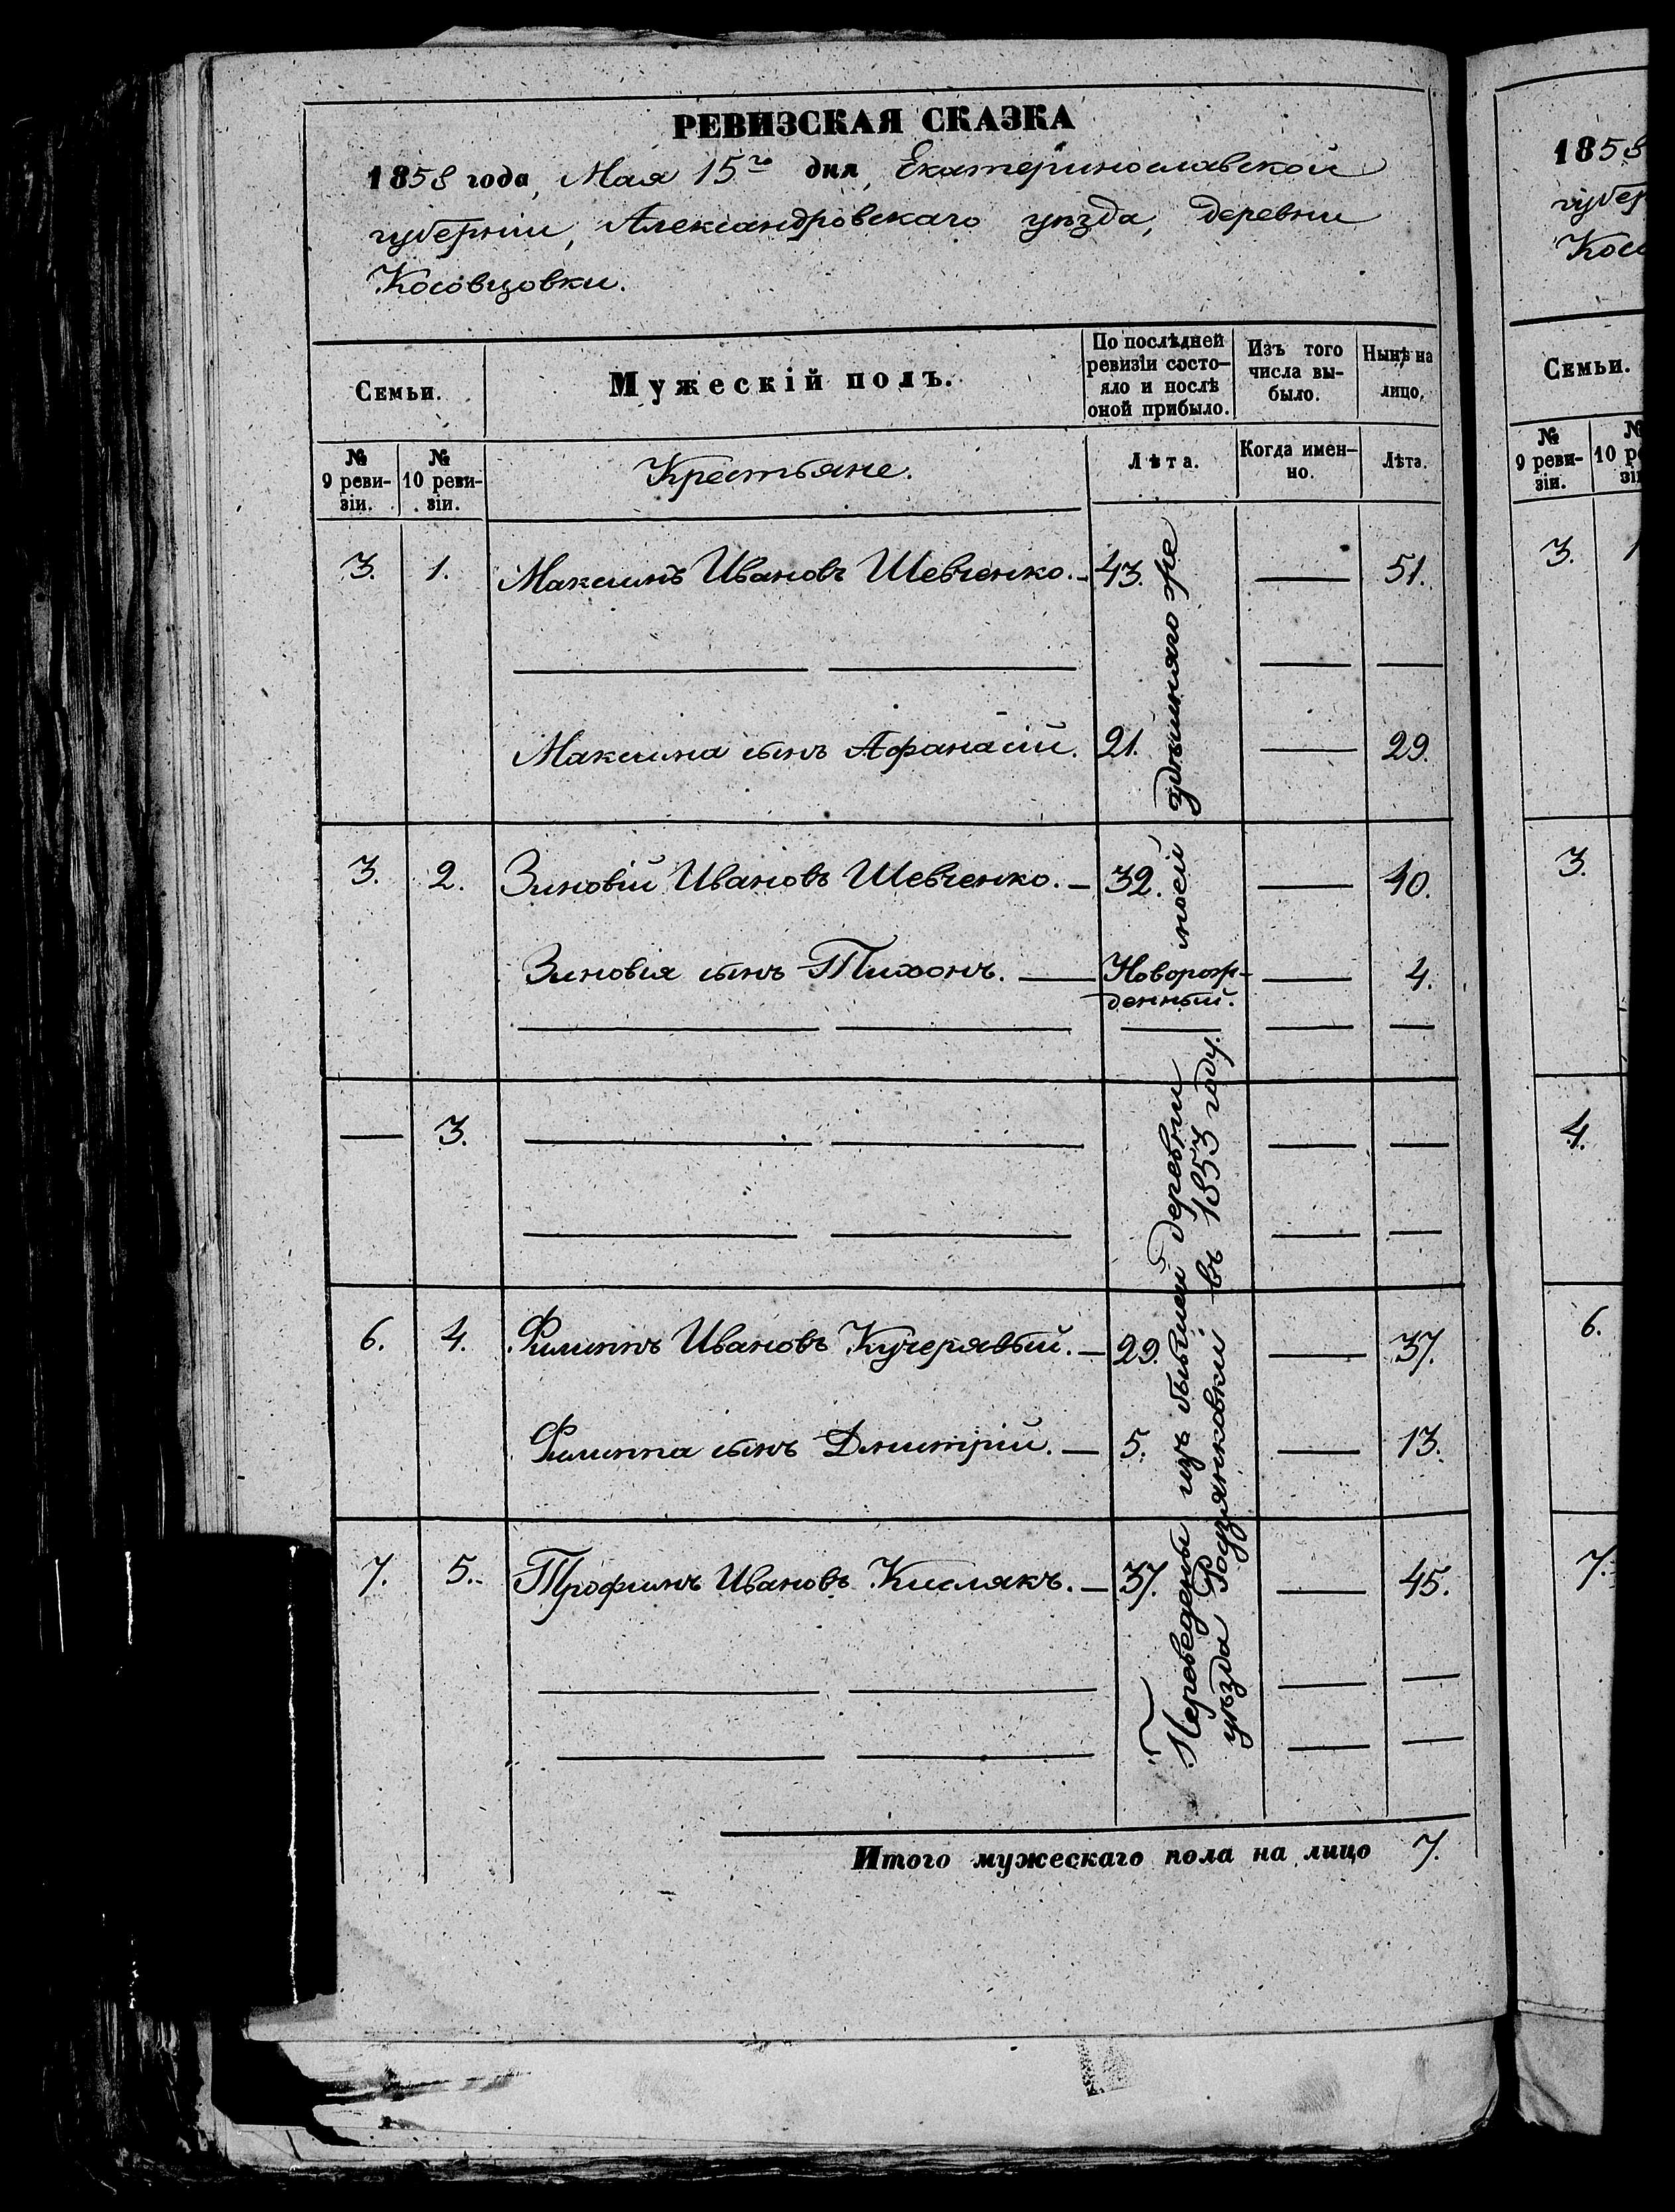 РЕВИЗСКАЯ СКАЗКА
1858 года, Мая 15го дня, Екатеринославской
губерніи, Александровскаго уѣзда, деревни
Косовцовки.
Семьи.
Мужескій полъ.
По послѣдней
ревизіи состо-
яло и послѣ
оной прибыло.
Изъ того
числа вы-
было.
Нынѣ на
лицо.
№
9 реви-
зіи.
№
10 реви-
зіи.
Крестьяне.
Лѣта.
Когда имен-
но.
Лѣта.
3. 1. Максимъ Ивановъ Шевченко. 43. 51.
Максима сынъ Афанасій. 21. 29.
3. 2. Зиновій Ивановъ Шевченко. 32. 40.
Зиновія сынъ Тихонъ. Новорож- 4.
денный.
3.
6. 4. Филиппъ Ивановъ Кучерявый. 29. 37.
Филиппа сынъ Дмитрій. 5. 13.
7. 5. Трофимъ Ивановъ Кислякъ. 37. 45.
Переведены изъ бывшей деревни
уѣзда въ 1853 году.
Итого мужескаго пола на лицо 7.
1858
губер
Косо
Семьи.
№
9 реви-
зіи.
3.
3.
4.
6.
7.